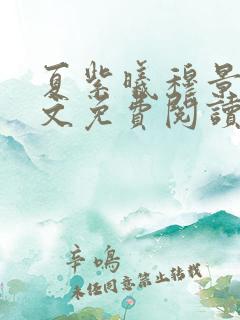 夏紫曦穆景
文免費閱讀
辛鳴
未经同意禁止转载